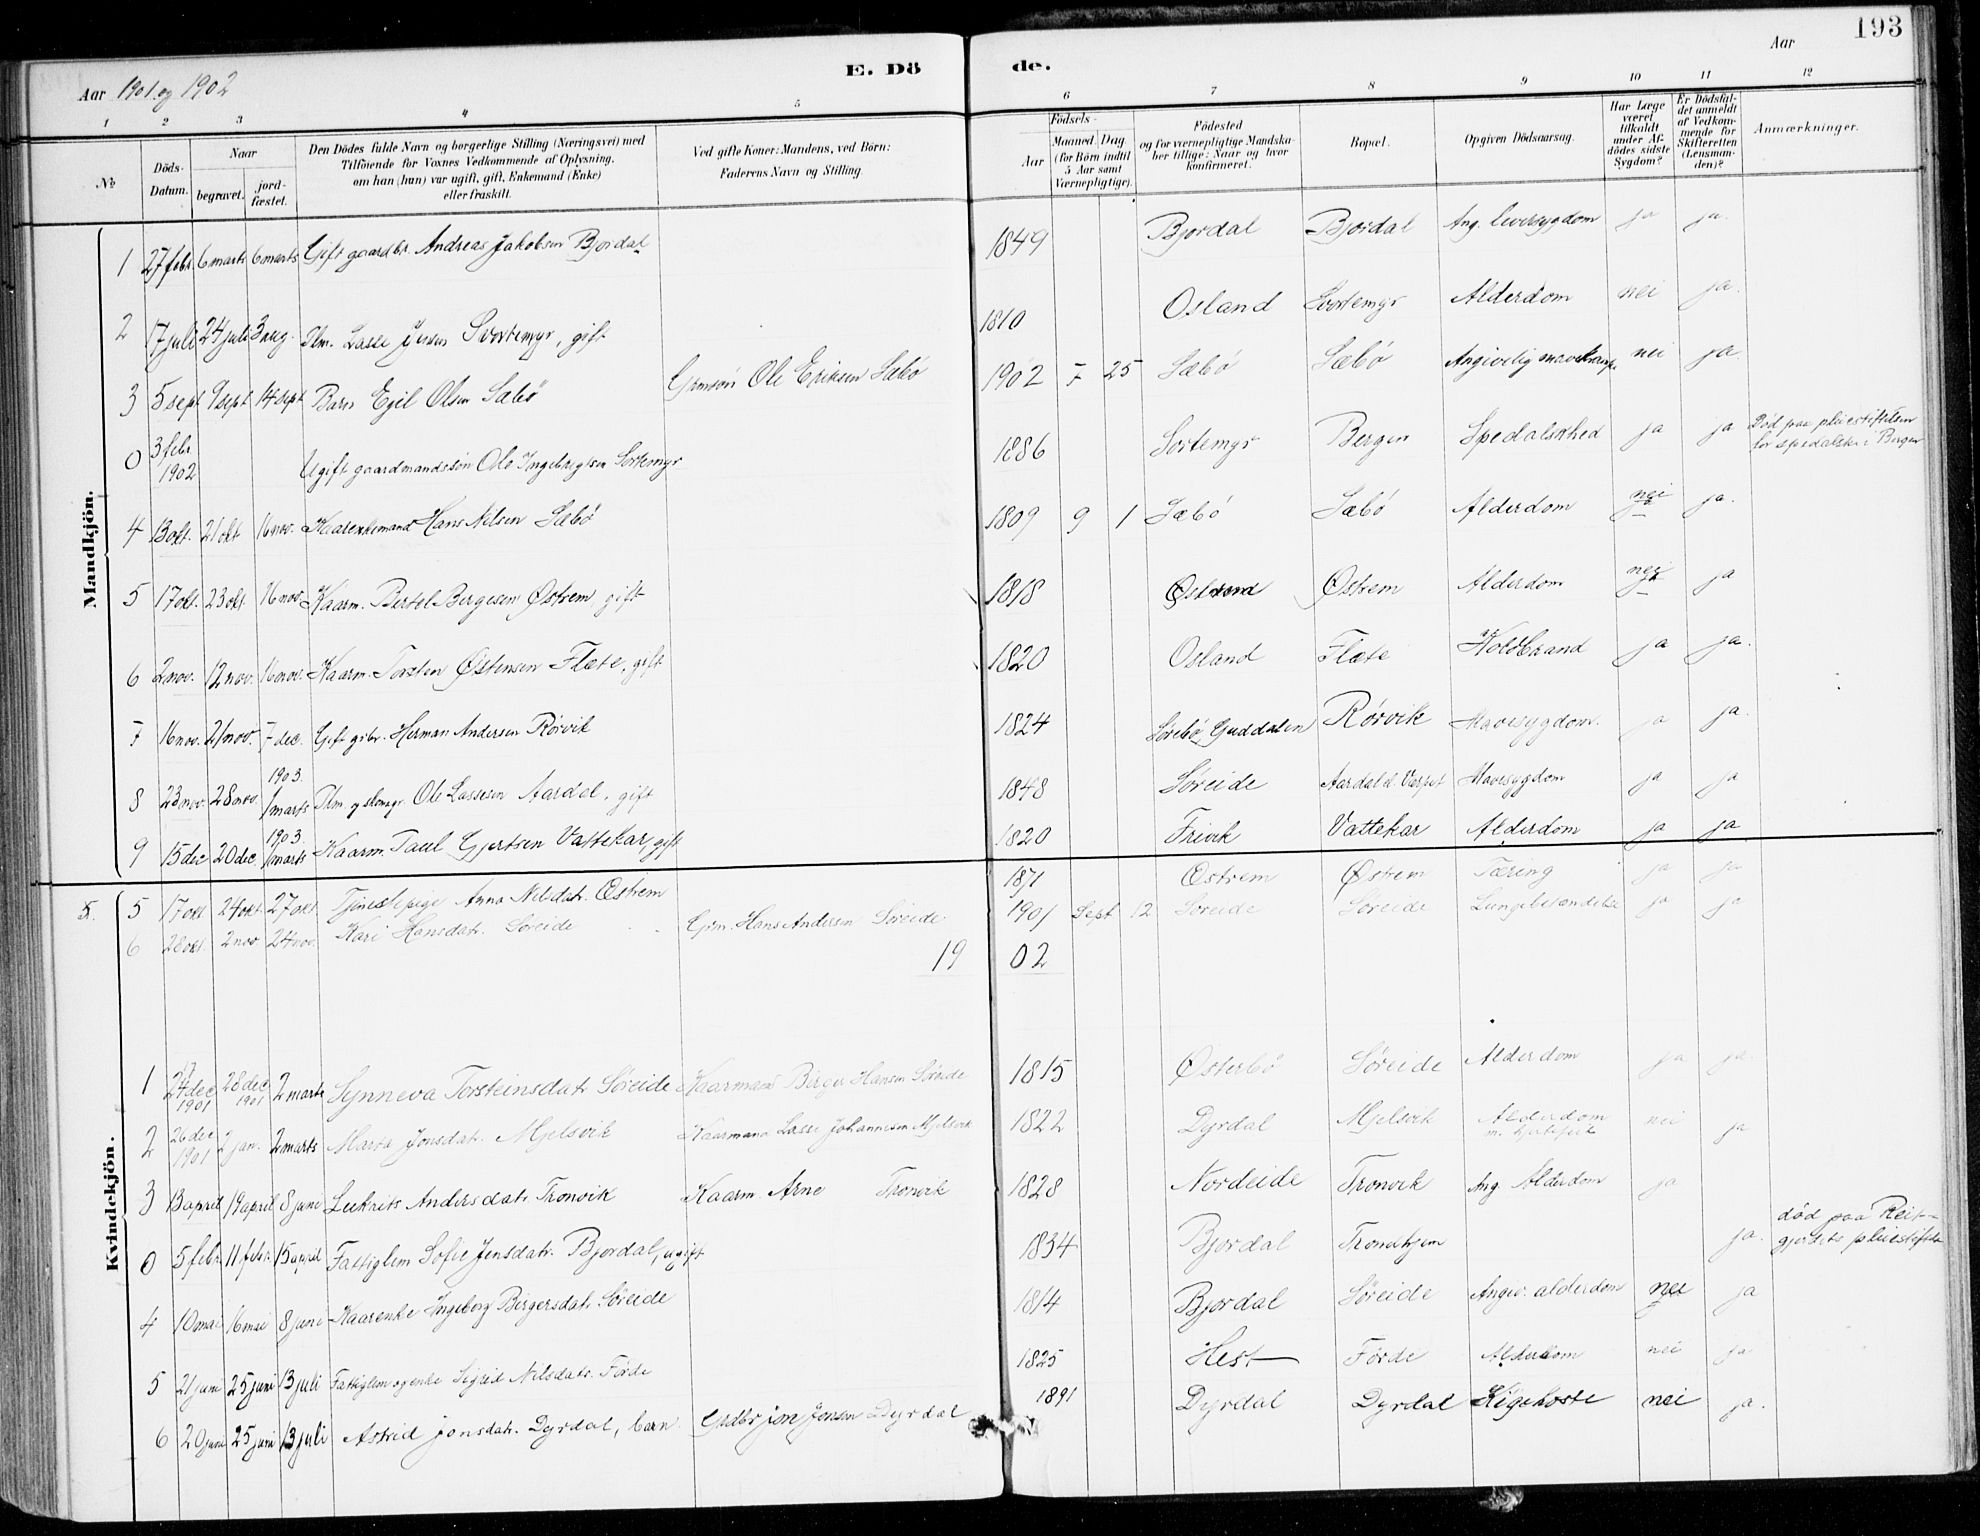 193
Aar 1901 og 1902
E. Dö de.
Aar
1 2 3 4 5 6 7 8 9 10 11 12
No
Döds-Datum.
Naar
begravet.
jord-fæstet.
Den Dödes fulde Navn og borgerlige Stilling (Næringsvei) med
Tilföiende for Voxnes Vedkommende af Oplysning,
om han (hun) var ugift, gift, Enkemand (Enke)
eller fraskilt.
Ved gifte Koner: Mandens, ved Börn:
Faderens Navn og Stilling.
Födsels-
Aar
Maaned. Dag
(for Börn indtil
5 Aar samt
Værnepligtige).
Födested
og for værnepligtige Mandska-
ber tillige: Naar og hvor
konfirmeret.
Bopæl.
Opgiven Dödsaarsag.
Har Læge
været
tilkaldt
under Af-
dödes sidste
Sygdom?
Er Dödsfal-
det anmeldt
af Vedkom-
mende for
Skifteretten
(Lensman-
den)?
Anmærkninger.
Mandkjön.
1 27 febr. 6 marts 6 marts Gift gaardbr. Andreas Jakobsen Bjordal 1849 Bjordal Bjordal Ang. leversygdom ja ja.
2 17 juli 24 juli 3 aug. Flm. Lasse Jensen Svortemyr, gift 1810 Osland Svortemyr Alderdom nei ja.
3 5 sept 9 sept 14 sept Barn Egil Olsen Sæbö Grmsön Ole Eriksen Sæbö 1902 7 25 Sæbö Sæbö Angivelig mavekrampe nei ja.
0 3 febr 1902 Ugift gaardmandssön Ole Ingebrigtsen Sortemyr 1886 Sortemyr Bergen Spedalskhed ja ja Död paa pleiestiftelsen
for spedalske i Bergen
4 13 okt. 21 okt 16 nov. Kaarenkemand Hans Nilsen Sæbö 1809 9 1 Sæbö Sæbö Alderdom nei ja.
5 17 okt. 23 okt. 16 nov. Kaarm. Bertel Bergesen Østrem gift 1818 Østrem Østrem Alderdom nei ja
6 2 nov. 12 nov. 16 nov. Kaarm. Torsten Østensen Flæte, gift 1820 Osland Flæte Koldbrand ja ja.
7 16 nov. 21 nov. 7 dec. Gift grbr. Herman Andersen Rörvik 1824 Sörebö, Guddalen Rörvik Mavesygdom. ja ja.
8 23 nov. 28 nov. 1903 1 marts Flm. og skomgr. Ole Lassesen Aardal, gift 1848 Söreide Aardal Mavesygdom ja ja
9 15 dec 20 dec. 1903 1 marts Kaarm. Paul Gjertsen Vattekar, gift 1820 Frivik Vattekar Alderdom ja ja
5 17 okt 24 okt. 27 okt. Tjenestepige Anna Nilsdat. Østrem 1871 Østrem Østrem Tæring ja ja
6 28 okt. 2 nov 24 nov. Kari Hansdat. Söreide Grm. Hans Andersen Söreide 1901 Sept 12 Söreide Söreide Lungebetændelse ja ja
19 02
Kvindekjön.
1 24 dec 1901 28 dec 1901 2 marts Synneva Torsteinsdat. Söreide Kaarmand Birger Hansen Sönde 1815 Østerbö Söreide Alderdom ja ja.
2 26 dec 1901 2 jan. 2 marts Marta Jonsdat. Mjelsvik Kaarmand Lasse Johannesen Mjelsvik 1822 Dyrdal Mjelsvik Alderdom nei ja
3 13 april 19 april 8 juni Lukrits Andersdat. Tronvik Kaarm. Arne Tronvik 1828 Nordeide Tronvik Ang. Alderdom ja
0 5 febr. 11 febr. 15 april Fattiglem Sofie Jensdatr. Bjordal, ugift 1834 Bjordal Trondhjem ja. död paa Reit-
gjerdets pleiestiftelse
4 10 mai 16 mai 8 juni Kaarenke Ingeborg Birgersdat. Söreide 1814 Bjordal Söreide Angiv. alderdom nei ja
5 21 juni 25 juni 13 juli Fattiglem og enke Sigrid Nilsdatr. Förde 1825 Hest Förde Alderdom nei ja
6 20 juni 25 juni 13 juli Astrid Jonsdat. Dyrdal, barn Grdbr Jon Jensen Dyrdal 1891 Dyrdal Dyrdal Kigehoste nei ja.